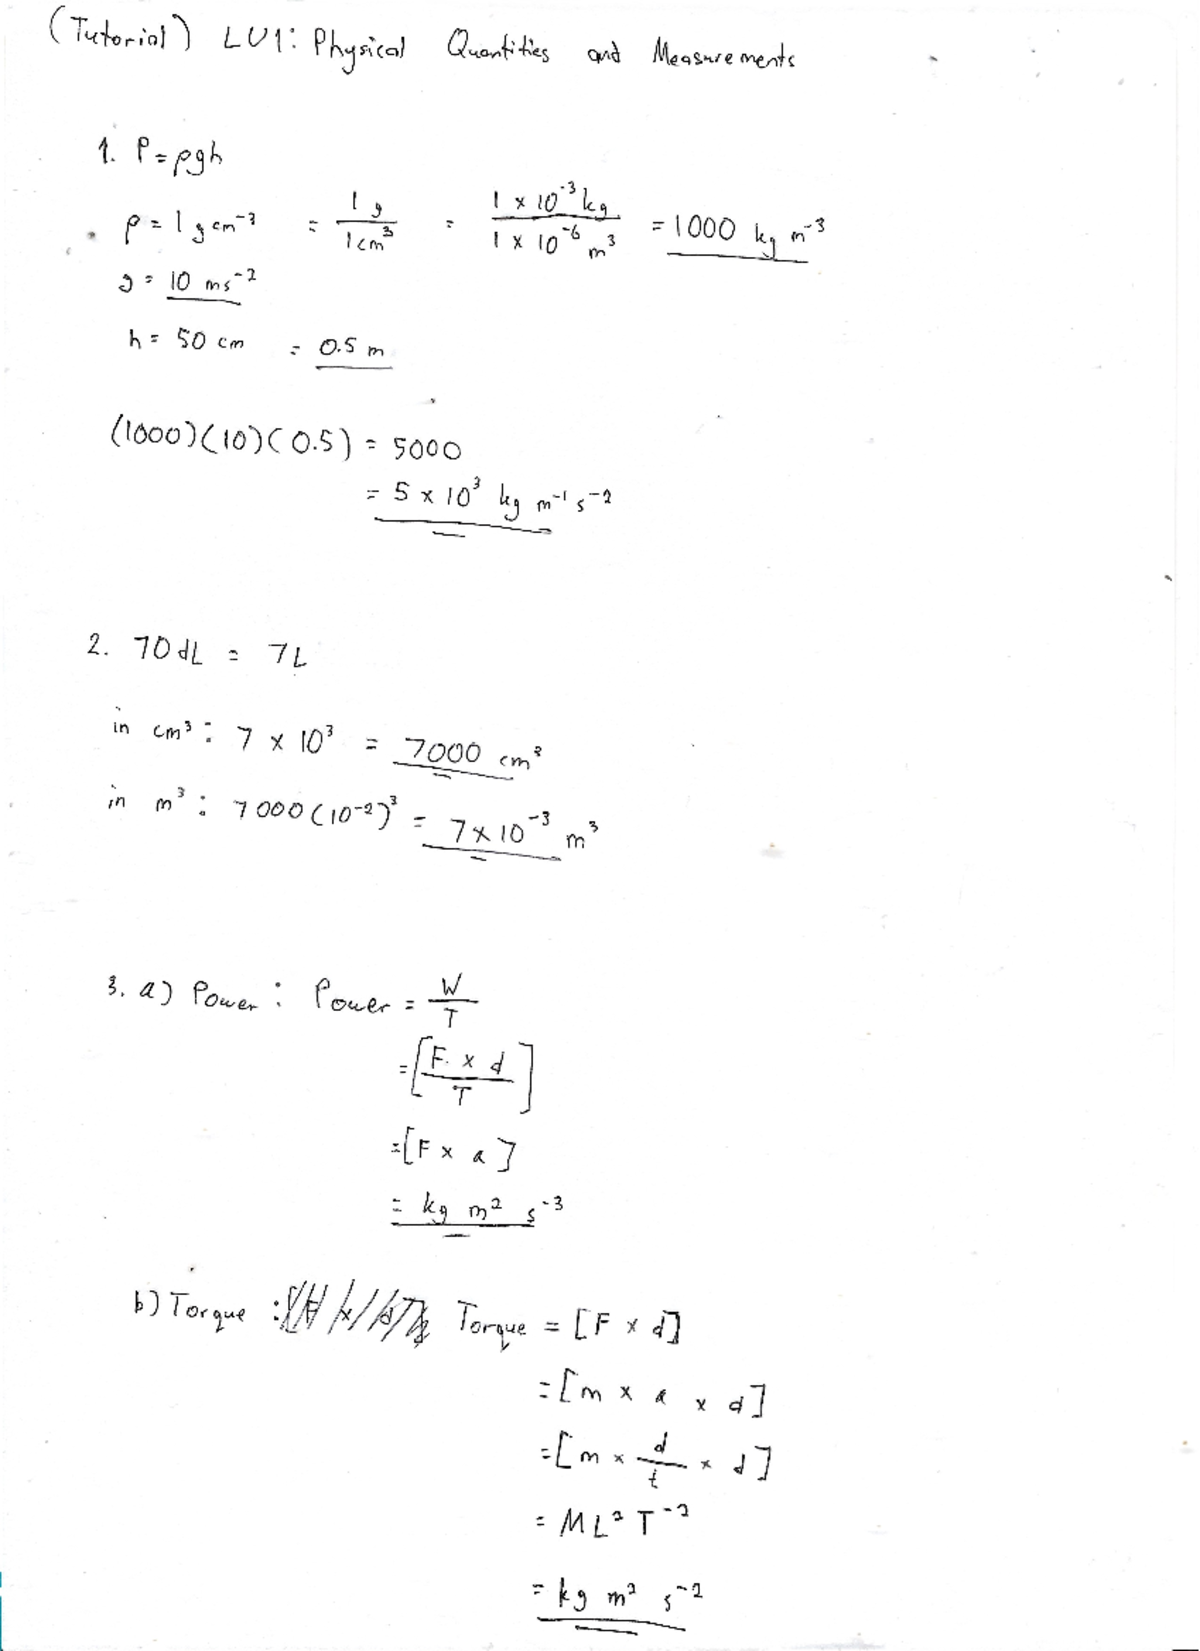 (Tutorial) LU1: Physical Quantities and Measurements
1. P = ρgh
ρ = 1 g cm⁻³ = 1 g / 1 cm³ = 1 × 10⁻³ kg / 1 × 10⁻⁶ m³ = 1000 kg m⁻³
g = 10 ms⁻²
h = 50 cm = 0.5 m
(1000)(10)(0.5) = 5000
= 5 × 10³ kg m⁻¹ s⁻²
2. 70 dL = 7 L
in cm³ : 7 × 10³ = 7000 cm³
in m³ : 7000 (10⁻²)³ = 7 × 10⁻³ m³
3. a) Power : Power = W / T
= [F × d / T]
= [F × a]
= kg m² s⁻³
b) Torque : Torque = [F × d]
= [m × a × d]
= [m × d / t × d]
= ML² T⁻²
= kg m² s⁻²